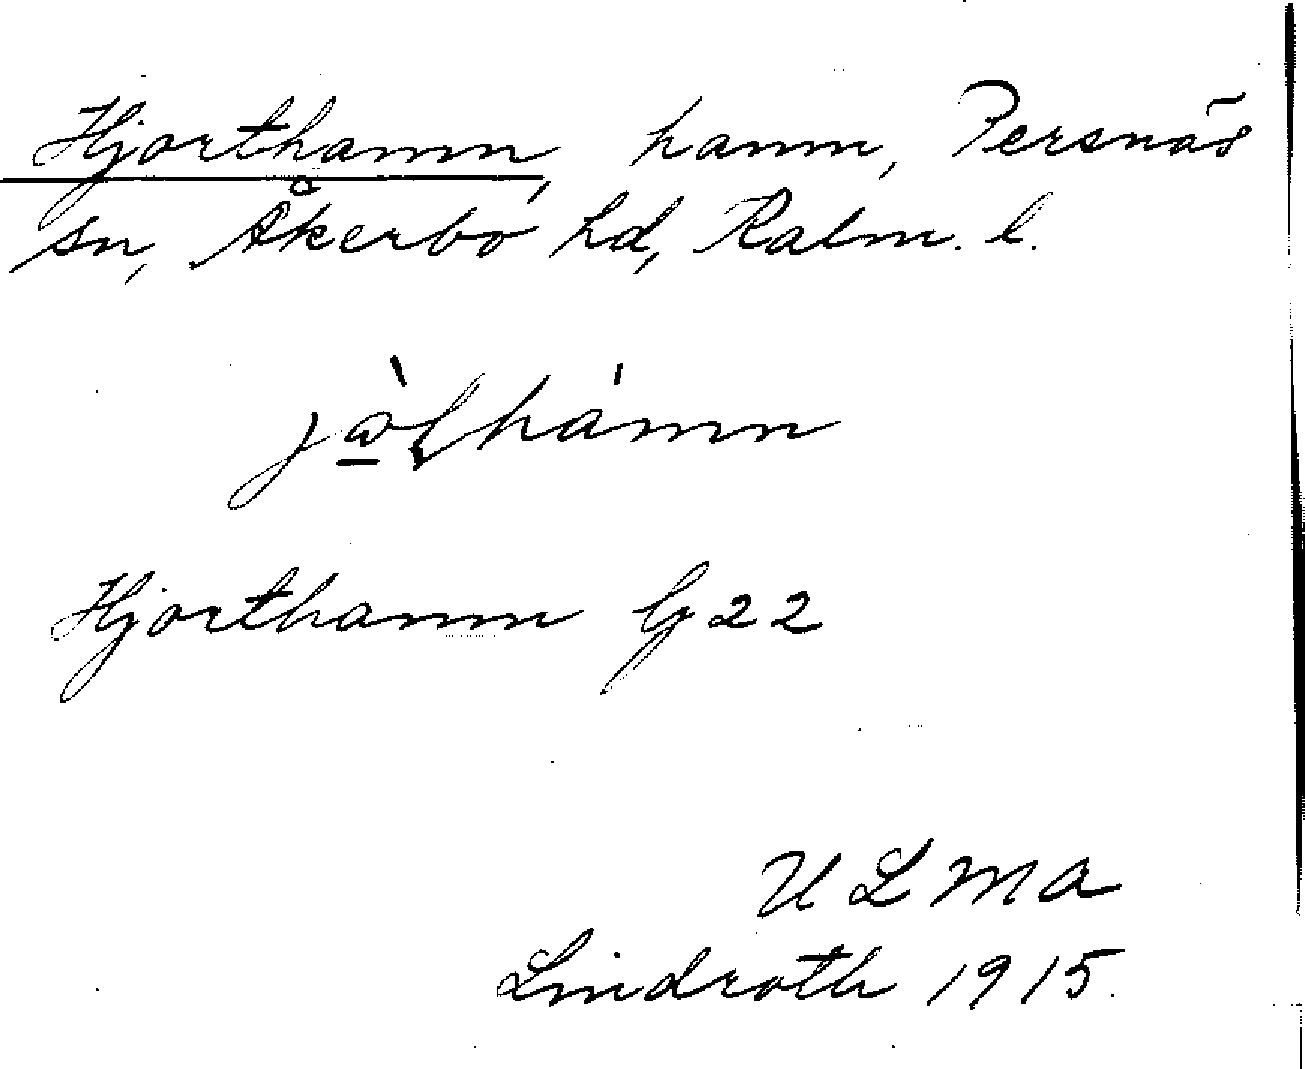 Hjorthamn, hamn, Persnäs
sn, Åkerbo hd, Kalm. l.
Hjorthamn G 22
ULMA
Lindroth 1915.